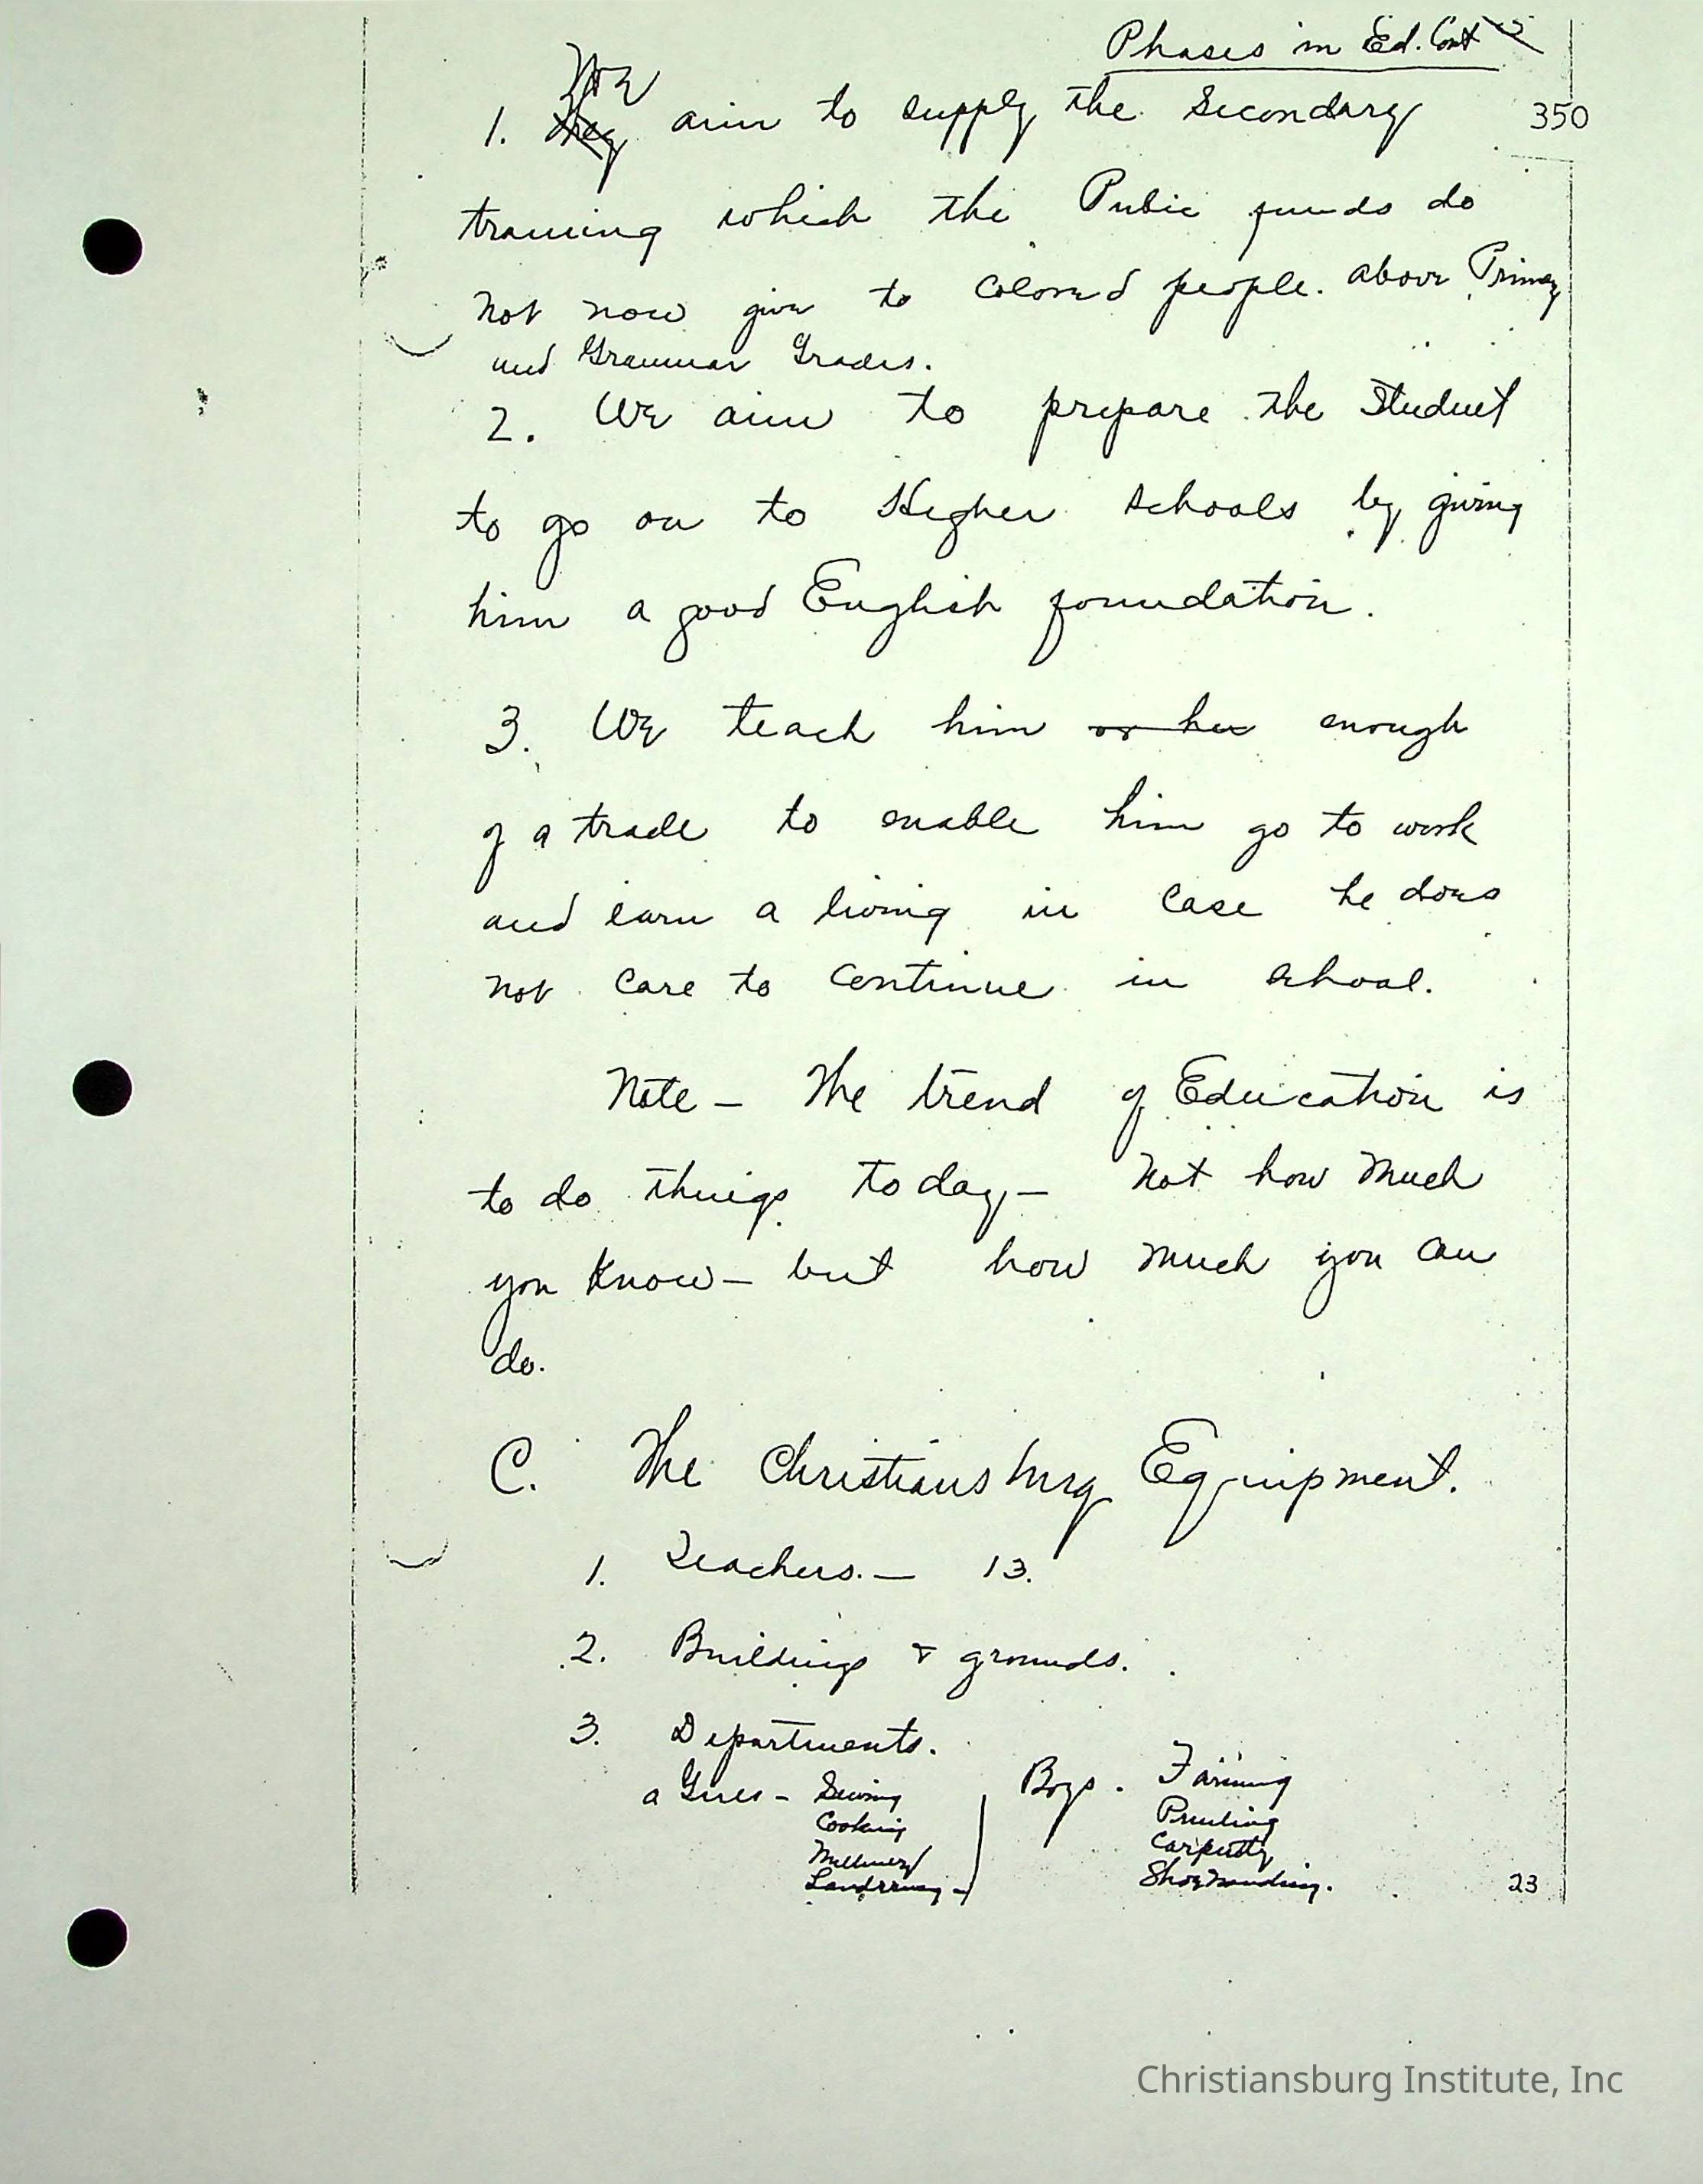 Phases in Ed. Cont
We
1. They aim to supply the Secondary 350
training which the Public funds do
not now give to Colored people. above Primary
and Grammar Grades.
2. We aim to prepare the Student
to go on to Higher schools by giving
him a good English foundation.
3. We teach him or her enough
of a trade to enable him go to work
and earn a living in Case he does
not Care to Continue in school.
Note - The trend of Education is
to do things today - Not how Much
you Know - but how Much you Can
do.
C. The Christiansburg Equipment.
1. Teachers. - 13.
2. Buildings & grounds.
3. Departments.
a Girls - Sewing Boys. Farming
Cooking Printing
Millinery Carpentry
Landrying - Shoe Mending.
23
Christiansburg Institute, Inc